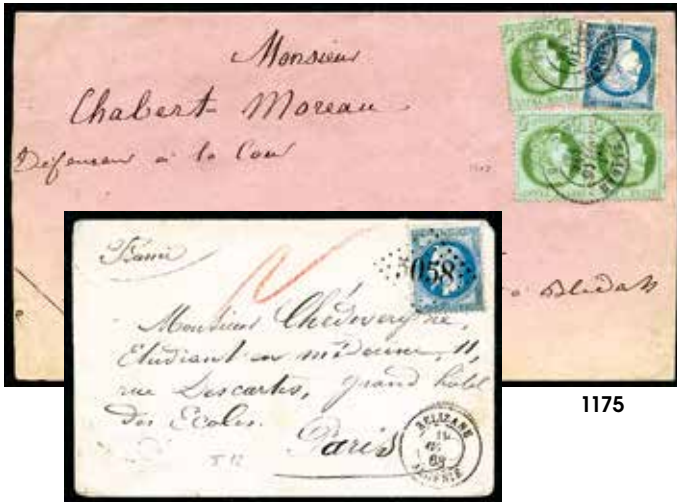 Monsieur
Chabert Moreau
Défenseur à la Cour
à Blidah
5058
Monsieur
Etudiant en médecine, 11,
rue Descartes, grand hôtel
des Ecoles.
Paris
RELIZANE
68
ALGERIE
1175